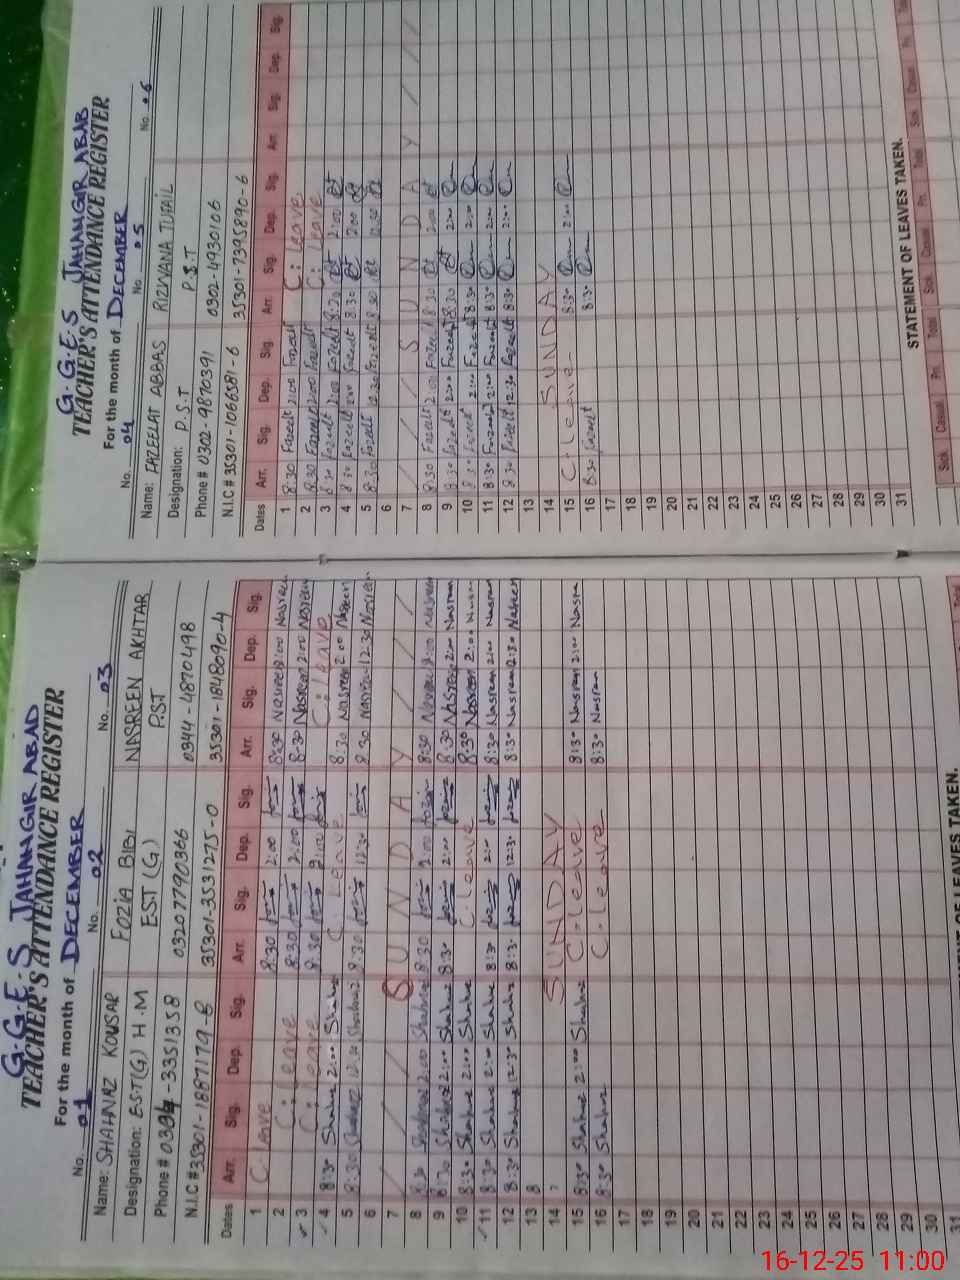 G.G.E.S JAHANGIR ABAD
TEACHER'S ATTENDANCE REGISTER
For the month of DECEMBER
No. 01 No. 02 No. 03
Name: SHAHNAZ KOUSAR FOZIA BIBI NASREEN AKHTAR
Designation: EST(G) H.M EST (G) P.S.T
Phone # 0304-3351358 03207790366 0344-4870498
N.I.C # 35301-1887179-8 35301-3531275-0 35301-1848090-4
Dates Arr. Sig. Dep. Sig. Arr. Sig. Dep. Sig. Arr. Sig. Dep. Sig.
1 C. leave 8:30 2:00 8:30 Nasreen 2:00 Nasreen
2 C: leave 8:30 2:00 8:30 Nasreen 2:00 Nasreen
3 C: leave 8:30 2:00 C: leave
4 8:30 Shahnaz 2:00 Shahnaz C. leave 8:30 Nasreen 2:00 Nasreen
5 8:30 Shahnaz 12:30 Shahnaz 8:30 12:30 8:30 Nasreen 12:30 Nasreen
6
7 S U N D A Y
8 8:30 Shahnaz 2:00 Shahnaz 8:30 2:00 8:30 Nasreen 2:00 Nasreen
9 8:30 Shahnaz 2:00 Shahnaz 8:30 2:00 8:30 Nasreen 2:00 Nasreen
10 8:30 Shahnaz 2:00 Shahnaz C. leave 8:30 Nasreen 2:00 Nasreen
11 8:30 Shahnaz 2:00 Shahnaz 8:30 2:00 8:30 Nasreen 2:00 Nasreen
12 8:30 Shahnaz 12:30 Shahnaz 8:30 12:30 8:30 Nasreen 12:30 Nasreen
13 8
14 SUNDAY
15 8:30 Shahnaz 2:00 Shahnaz C. leave 8:30 Nasreen 2:00 Nasreen
16 8:30 Shahnaz C. leave 8:30 Nasreen
17
18
19
20
21
22
23
24
25
26
27
28
29
30
31
G.G.E.S JAHANGIR ABAB
TEACHER'S ATTENDANCE REGISTER
For the month of DECEMBER
No. 04 No. 05 No. 06
Name: FAZEELAT ABBAS RIZWANA TUFAIL
Designation: P.S.T P.S.T
Phone # 0302-9870391 0302-4930106
N.I.C # 35301-1066581-6 35301-7395890-6
Dates Arr. Sig. Dep. Sig. Arr. Sig. Dep. Sig. Arr. Sig. Dep. Sig.
1 8:30 Fazeelt 2:00 Fazeelt C: leave
2 8:30 Fazeelt 2:00 Fazeelt C: leave
3 8:30 Fazeelt 2:00 Fazeelt 8:30 2:00
4 8:30 Fazeelt 2:00 Fazeelt 8:30 2:00
5 8:30 Fazeelt 12:30 Fazeelt 8:30 12:30
6
7 S U N D A Y
8 8:30 Fazeelt 2:00 Fazeelt 8:30 2:00
9 8:30 Fazeelt 2:00 Fazeelt 8:30 2:00
10 Fazeelt 2:00 Fazeelt 8:30 2:00
11 8:30 Fazeelt 2:00 Fazeelt 8:30 2:00
12 8:30 Fazeelt 12:30 Fazeelt 8:30 12:30
13
14 SUNDAY
15 C. leave 8:30 2:00
16 8:30 Fazeelt 8:30
17
18
19
20
21
22
23
24
25
26
27
28
29
30
31
STATEMENT OF LEAVES TAKEN.
Sick Casual Pri. Total Sick Casual Pri. Total Sick Casual Pri.
16-12-25 11:00